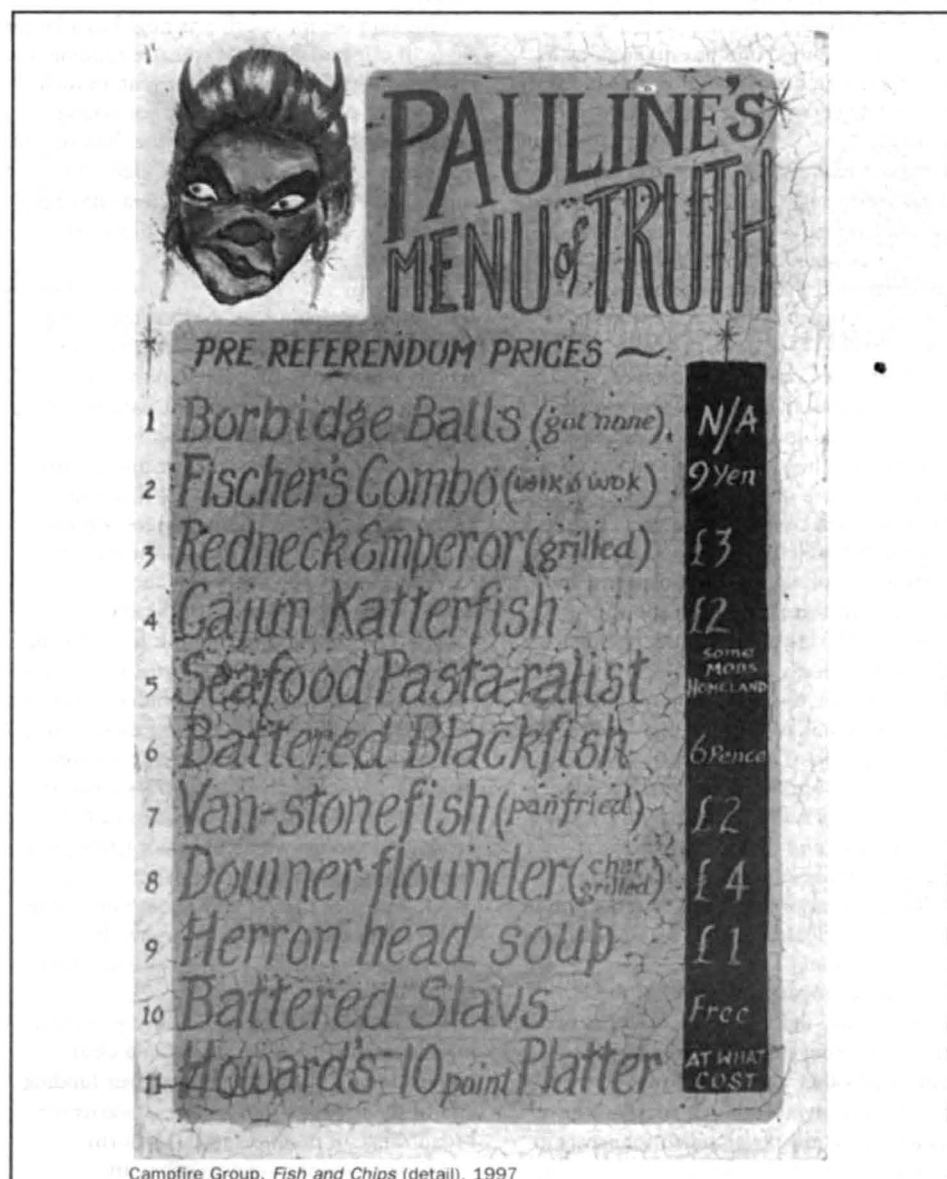 PAULINE'S
MENU of TRUTH
PRE REFERENDUM PRICES ~
1 Borbidge Balls (got none). N/A
2 Fischer's Combo (wik & wok) 9 Yen
3 Redneck Emperor (grilled) £3
4 Cajun Katterfish £2
5 Seafood Pasta-ralist SOME MOBS HOMELAND
6 Battered Blackfish 6 Pence
7 Van-stonefish (panfried) £2
8 Downer flounder (char grilled) £4
9 Herron head soup £1
10 Battered Slavs Free
11 Howard's 10 point Platter AT WHAT COST
Campfire Group, Fish and Chips (detail), 1997